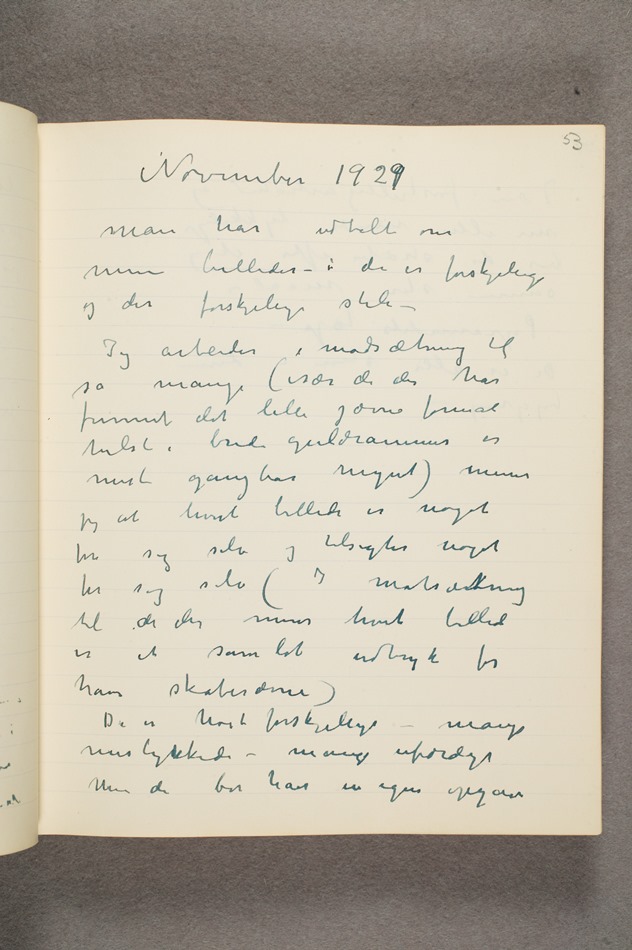 53
November 1929
man har udtalt om
mine billeder – : de er forskjelige
og der forskjelige stile –
Jeg arbeider i modsætning til
så mange (især de der har
funnet det lille jævne format
helst i brede guldrammer er
mest gangbar mynt) mener
jeg at hvert billede er noget
for sig selv og tilsigter noget
for sig selv (I motsætning
til de der mener hvert billed
er et samlet udtryk for
hans skaberævne)
De er høist forskjelige – mange
mislykkede – mange uferdige
Men de bør have en egen opgave